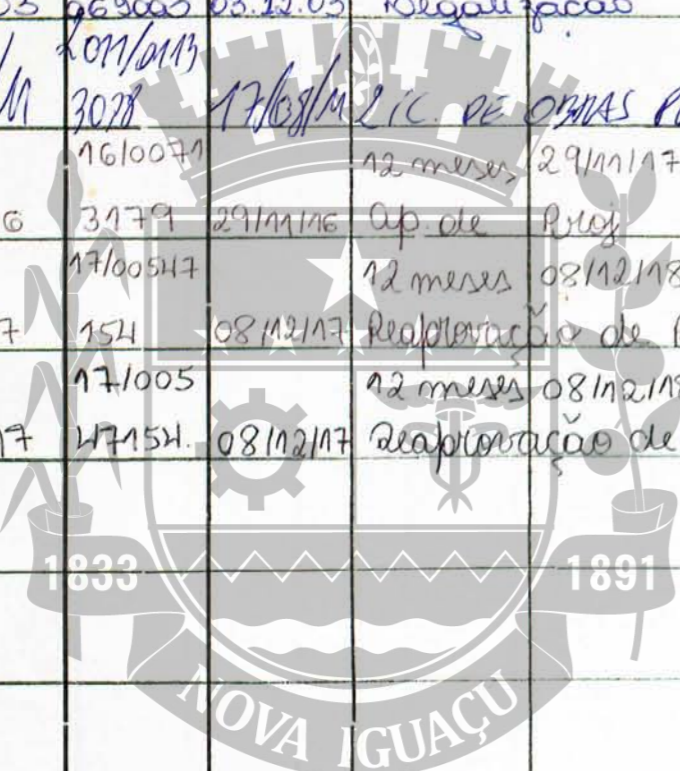 03 069003 03.12.03 Legalização
2011/0113
M 3078 17/08/11 LIC. DE OBRAS
16/0071 12 meses 29/11/17
6 3179 29/11/16 ap. de Proj
17/00547 12 meses 08/12/18
7 154 08/12/17 Reaprovação de P
17/005 12 meses 08/12/18
17 47154. 08/12/17 Reaprovação de
1833 1891
NOVA IGUAÇU